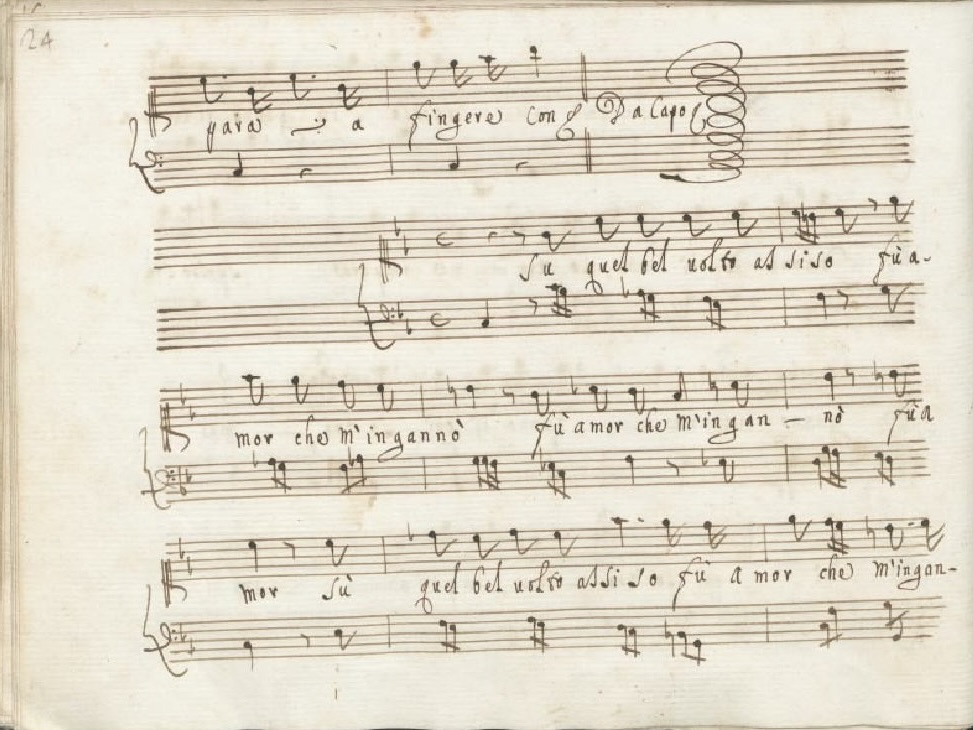 24
para a fingere con Da Capo
su quel bel uolto assiso fù a-
mor che m'ingannò fù amor che m'ingan - nò fù a
mor sù quel bel uolto assiso fù a mor che m'ingan-